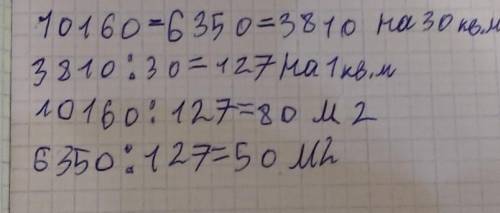 10160-6350=3810 на 30 кв.м
3810:30=127 на 1 кв.м
10160:127=80 м 2
6350:127=50 м2